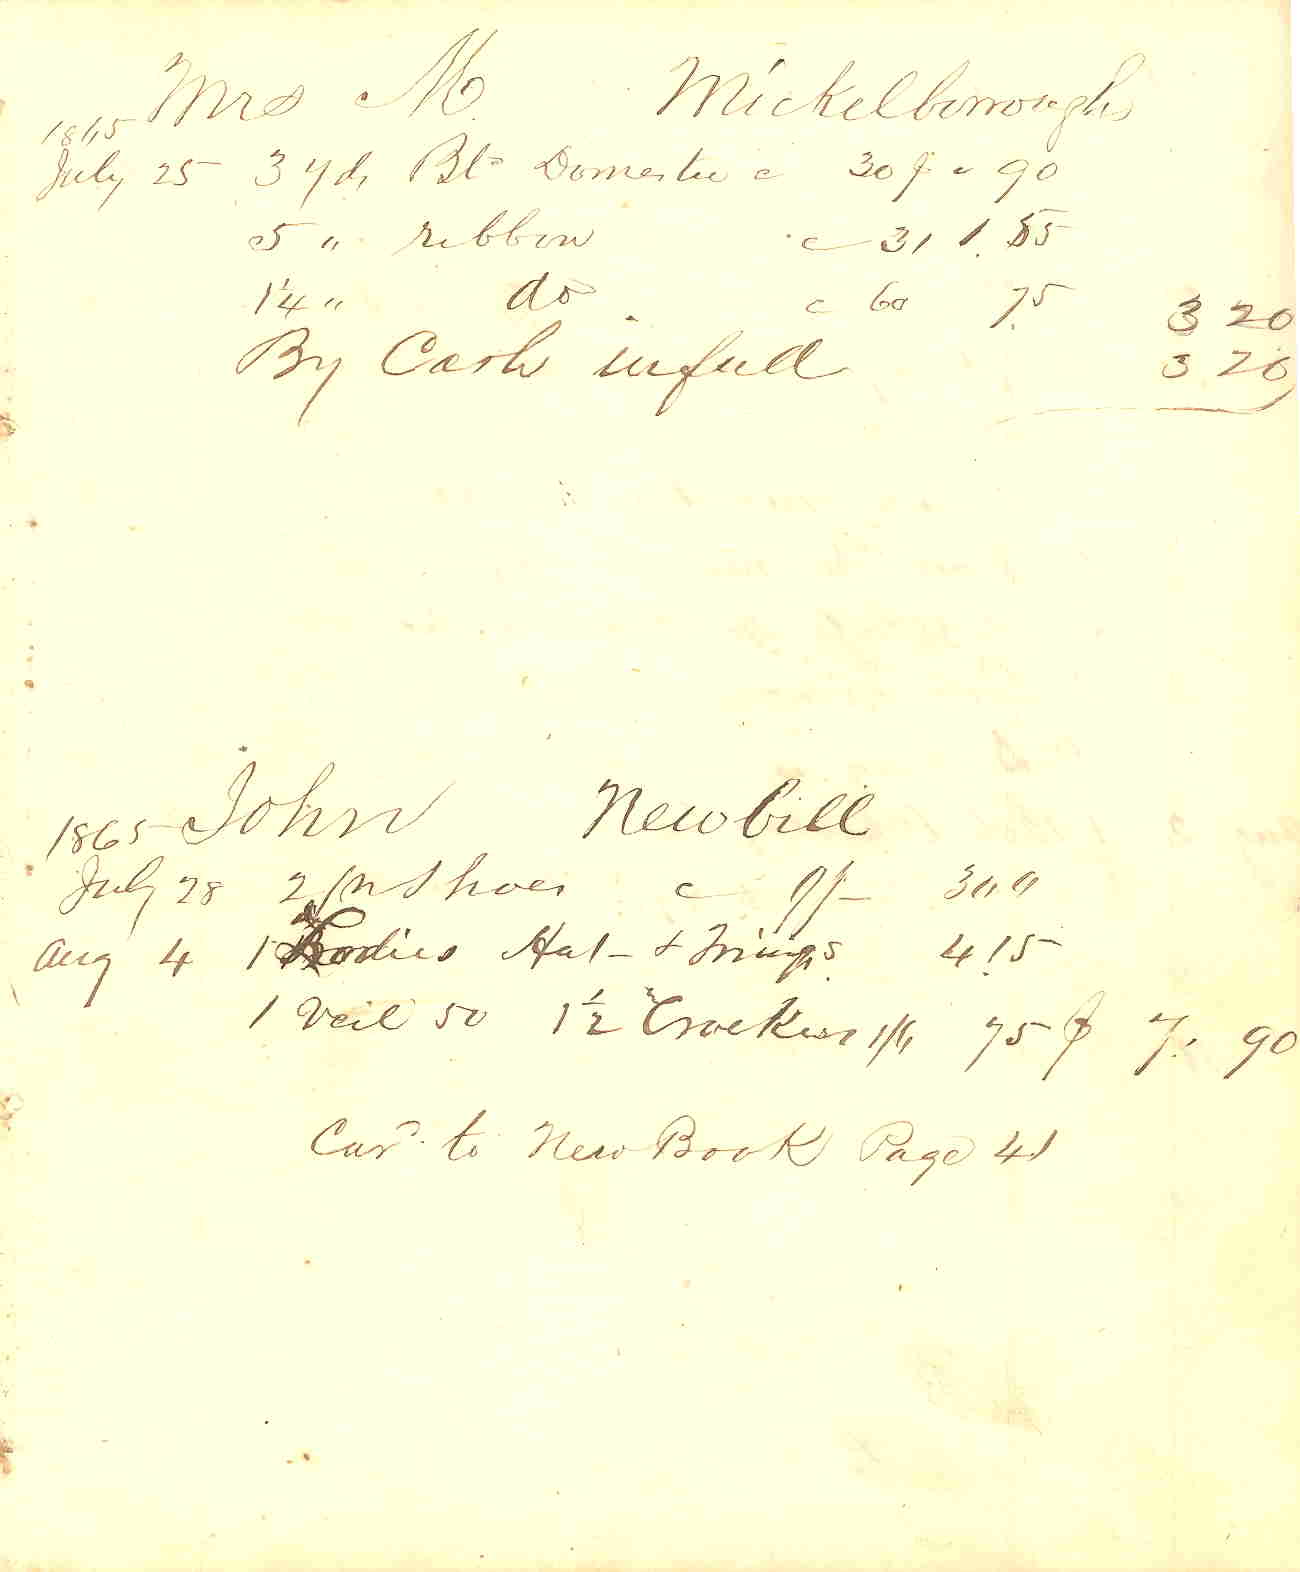 Mrs M. Mickelborough
1865
July 25 3 yds Bl Domestic c 30 90
5 " ribbon c 31 1.55
1¼ " do c 60 75 3 20
By Cash in full 3 20
John Newbill
1865
July 28 2 pr Shoes c 9/- 3 " "
Aug 4 1 Hat & Trimgs 4.15
1 Veil 50 1½ 1/6 75 7. 90
Card to New Book Page 41